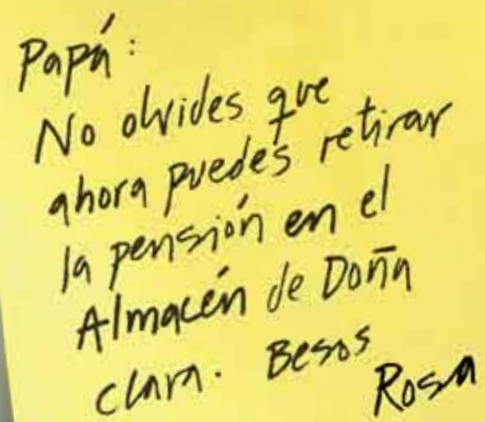 Papá:
No olvides que
ahora puedes retirar
la pensión en el
Almacén de Doña
clara. Besos
Rosa